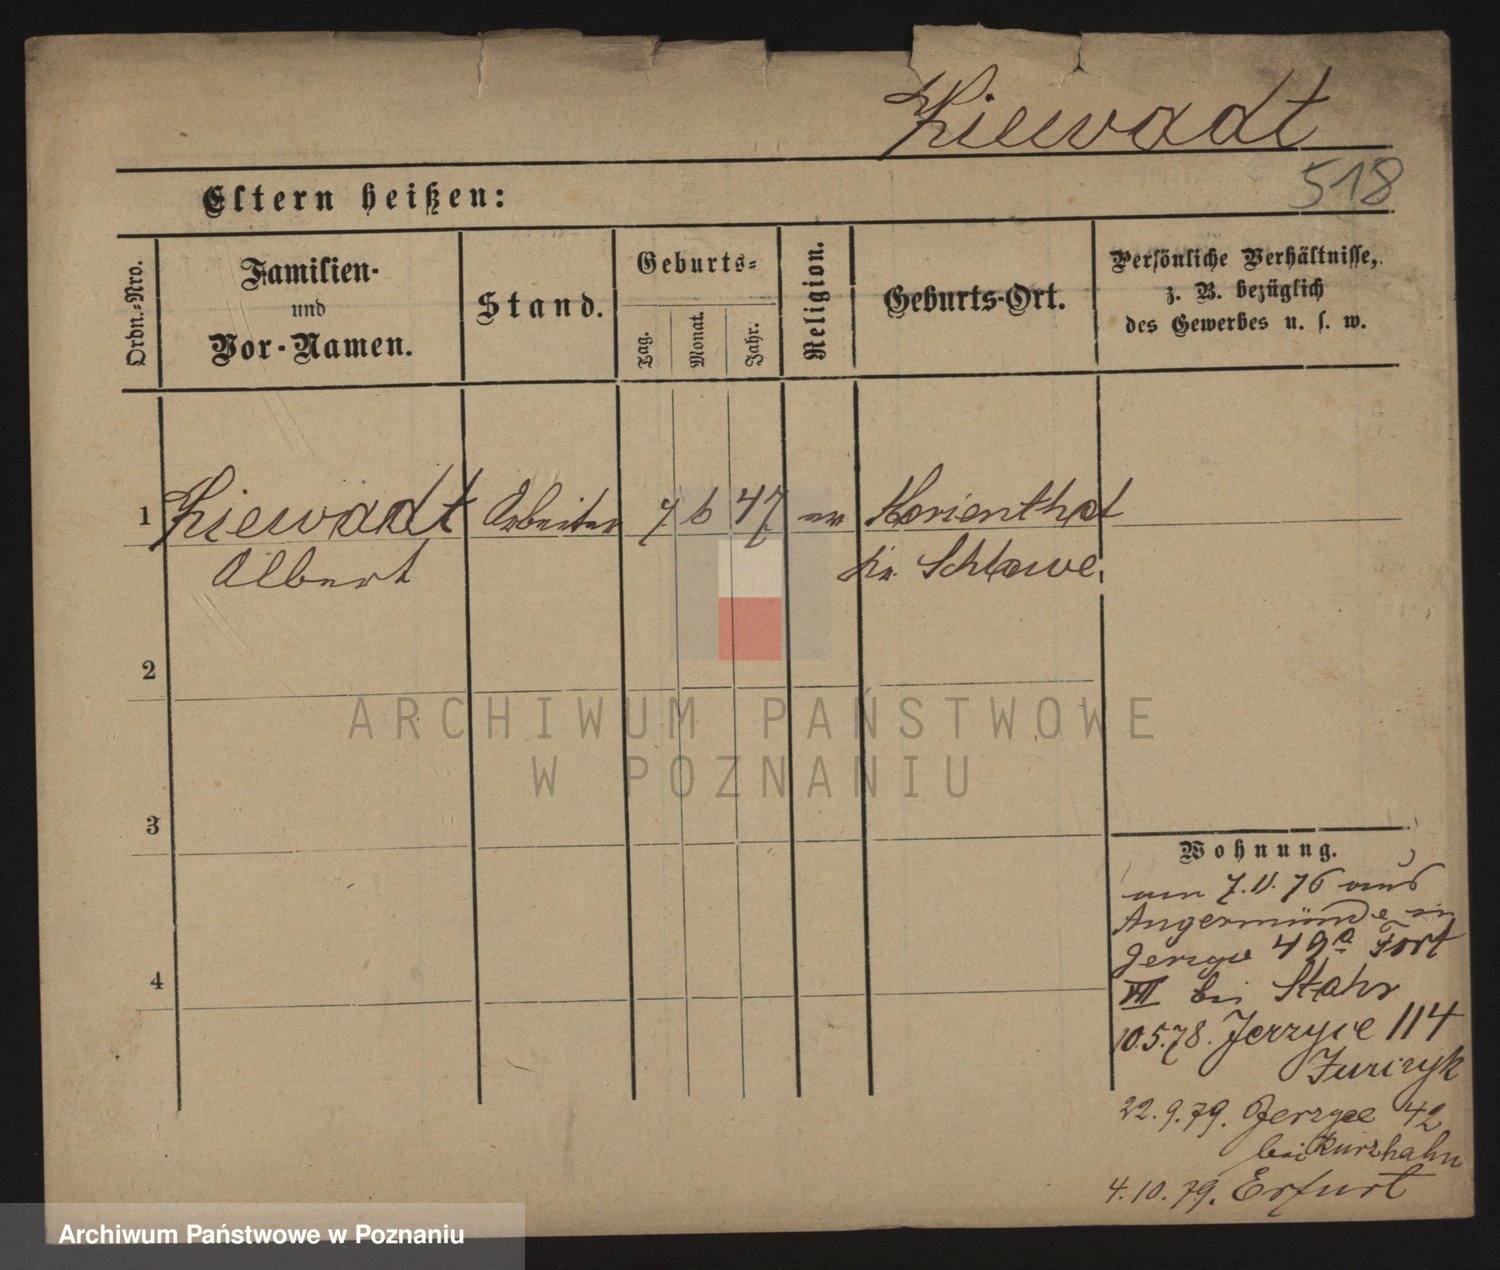 Kiewadt
518
Eltern heißen:
Ordn.-Nro.
Familien-
und
Vor-Namen.
Stand.
Geburts-
Tag.
Monat.
Jahr.
Religion.
Geburts-Ort.
Persönliche Verhältnisse,
z. B. bezüglich
des Gewerbes u. s. w.
1 Kiewadt Arbeiter 7 6 47 ev Marienthal
Albert Kr. Schlawe
2
3
4
Wohnung.
am 7.11.76 aus
Angermünde in
Jerzyce 49a Fort
VII bei Stahr
10.5.78. Jerzyce 114
22.9.79. Jerzyce 42
bei Kurzhahn
4.10.79. Erfurt
ARCHIWUM PAŃSTWOWE
W POZNANIU
Archiwum Państwowe w Poznaniu